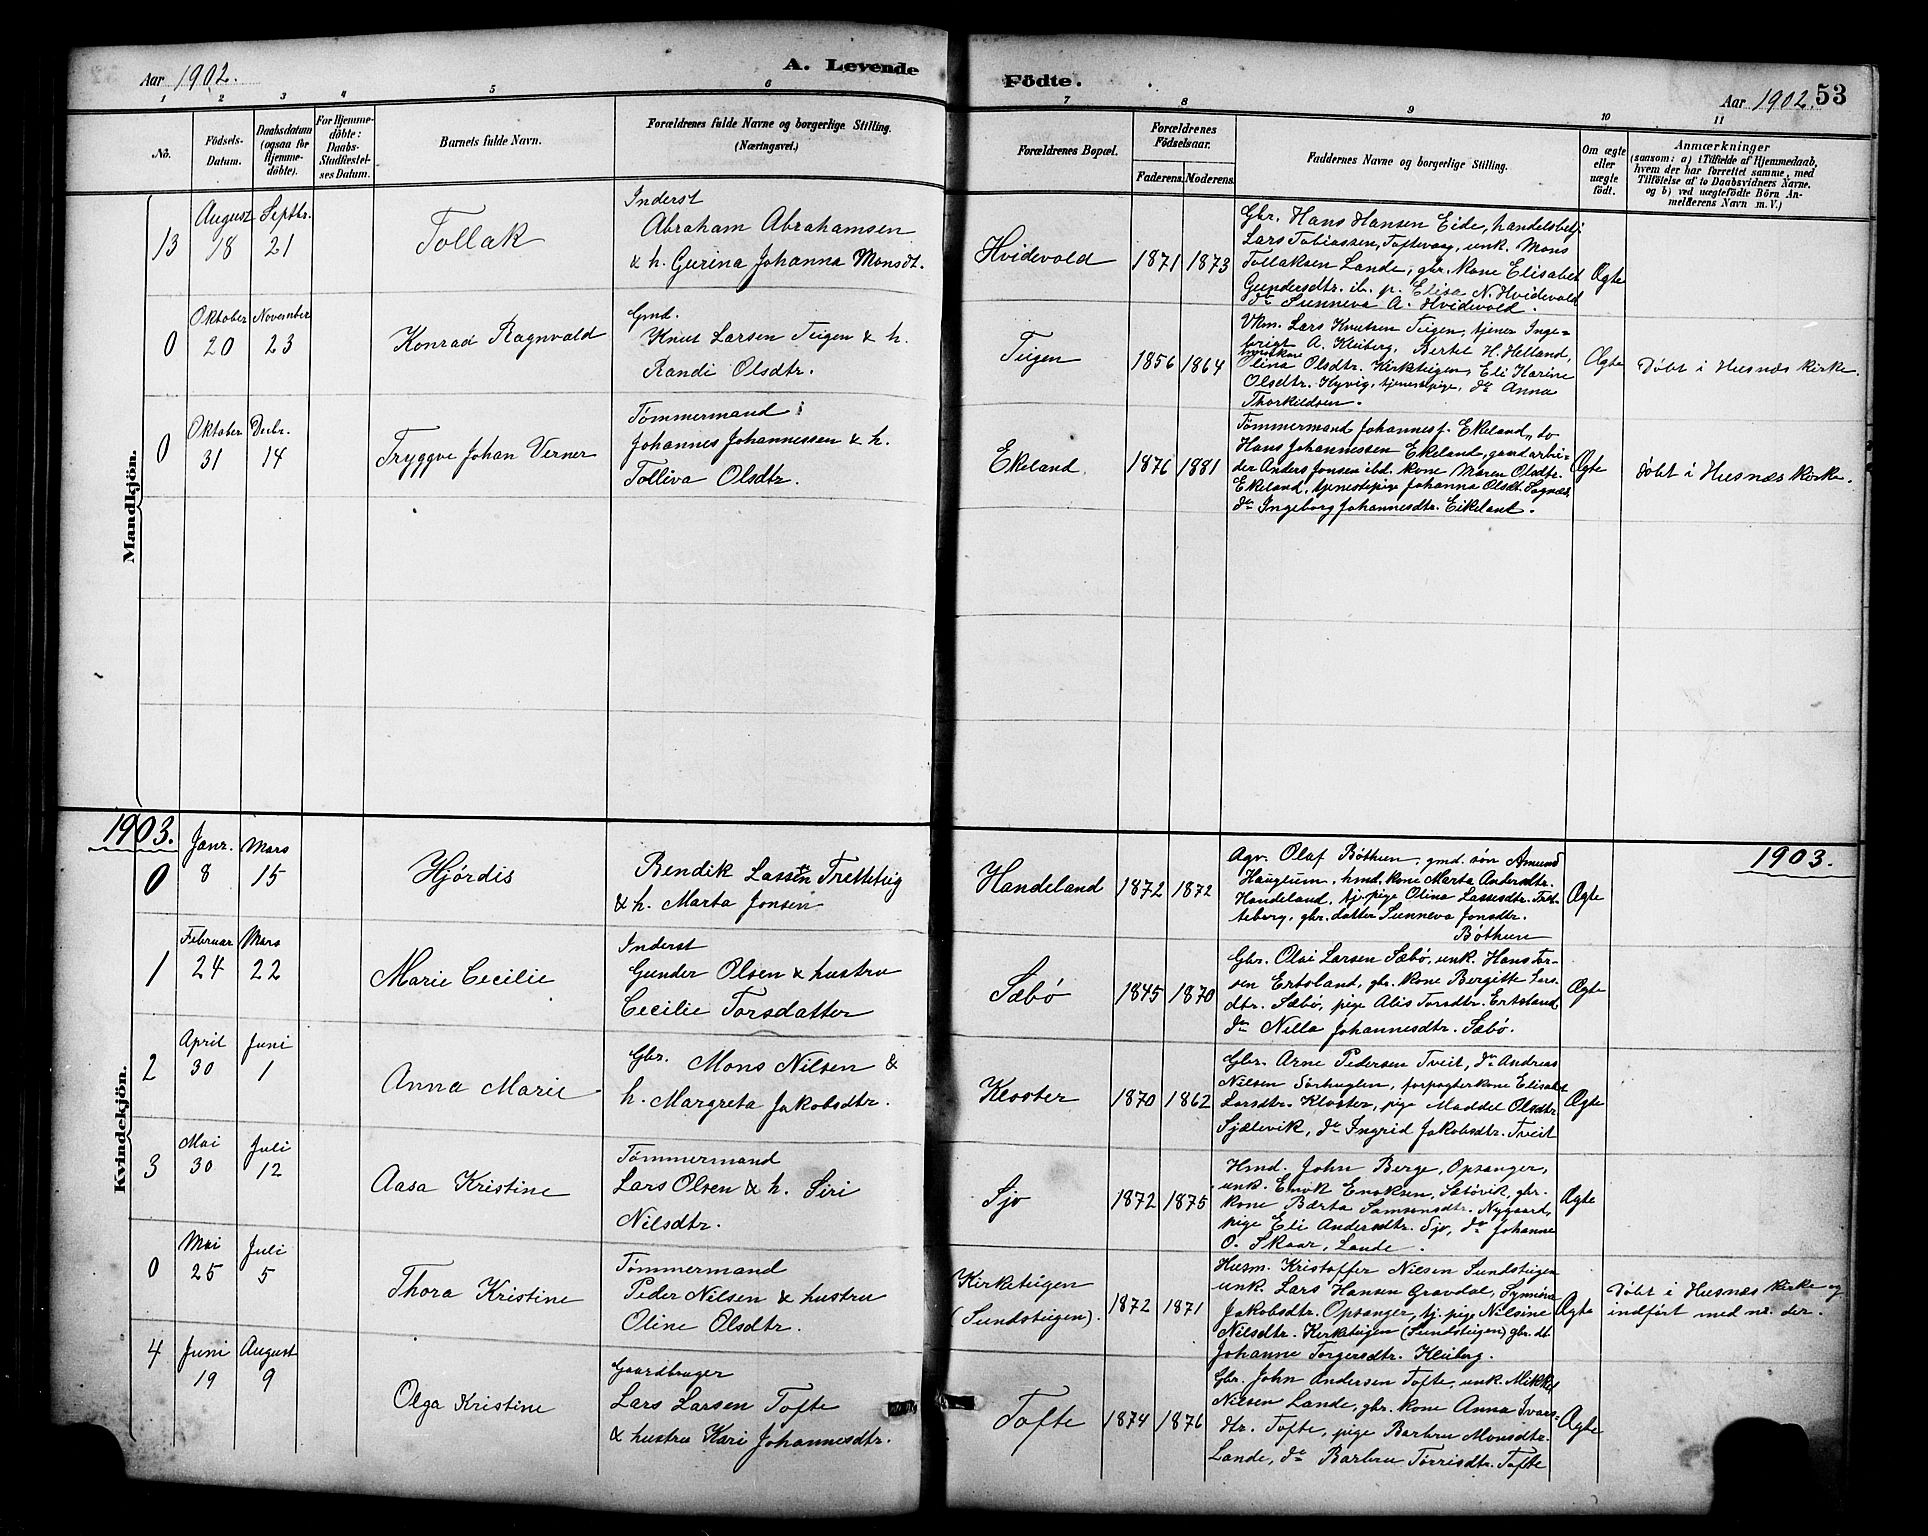 Aar 1902.
A. Levende
Födte.
Aar 1902.
53
1 2 3 4 5 6 7 8 9 10 11
No.
Födsels-
Datum.
Daabsdatum
(ogsaa for
Hjemme-
döbte).
For Hjemme-
döbte:
Daabs-
Stadfæstel-
ses Datum.
Barnets fulde Navn.
Forældrenes fulde Navne og borgerlige Stilling.
(Næringsvei.)
Forældrenes Bopæl.
Forældrenes
Födselsaar.
Faderens. Moderens.
Faddernes Navne og borgerlige Stilling.
Om ægte
eller
uægte
födt.
Anmærkninger
(saasom: a) i Tilfælde af Hjemmedaab,
hvem der har forrettet samme, med
Tilföielse af to Daabsvidners Navne,
og b) ved uægtefödte Börn An-
melderens Navn m. V.)
Mandkjön.
13
August
18
Septbr.
21
Tollak
Inderst
Abraham Abrahamsen
& h. Gurina Johanna Monsdt.
Hvidevold
1871 1873
Gbr. Hans Hansen Eide, handelsbetj.
Lars Tobiassen, Toftevaag, unk. Mons
Tollaksen Lande, gbr. kone Elisabet
Gundersdtr. ib. p. Elisa N. Hvidevold
do Sunneva A. Hvidevold.
Ægte
0
Oktober
20
November
23
Konrad Ragnvald
Gmd.
Knut Larsen Teigen & h.
Randi Olsdtr.
Teigen
1856 1864
Vkm. Lars Knutsen Teigen, tjener Inge-
brigt A. Kleiberg, Bertel H. Helland,
Olina Olsdtr. Kirketeigen, Eli Karine
Olsdtr. Hyvig, tjenestpige, do Anna
Thorkildsen.
Ægte
Døbt i Husnæs Kirke.
0
Oktober
31
Decbr.
14
Tryggve Johan Verner
Tømmermand
Johannes Johannessen & h.
Tolliva Olsdtr.
Ekeland.
1876 1881
Tømmermand Johannes J. Ekeland, do
Hans Johannessen Ekeland, gaardarbei-
der Anders Jonsen ibd. kone Maren Olsdtr.
Ekeland, tjenestepige Johanna Olsdt. Sognæs,
do Ingeborg Johannesdtr. Eikeland.
Ægte
Døbt i Husnæs Kirke.
Kvindekjön.
1903.
1903.
0
Janr.
8
Mars
15
Hjørdis
Bendik Lassen Tretteteig
& h. Marta Jonsen
Handeland
1872 1872
Agr. Olaf Bøthun, gmd. søn Amund
Hauglum, hmd. kone Marta Andersdtr.
Handeland, tj. pige Olina Lassesdtr. Tret-
teberg, gbr. datter Sunneva Jonsdtr.
Bøthun
Ægte
1
Februar
24
Mars
22
Marie Cecilie
Inderst
Gunder Olsen & hustru
Cecilie Torsdatter
Sæbø
1845 1870
Gbr. Olai Larsen Sæbø, unk. Hans Tor-
sen Ertsland, gbr. kone Bergitte Lars-
dtr. Sæbø, pige Alis Torsdtr. Ertsland,
do Nilla Johannesdtr. Sæbø.
Ægte
2
April
30
Juni
1
Anna Marie
Gbr. Mons Nilsen &
h. Margreta Jakobsdtr.
Kloster
1870 1862
Gbr. Arne Pedersen Tveit, do Andreas
Nilsen Sørhuglen, forpagterkone Elisabet
Larsdtr. Kloster, pige Maddel Olsdtr.
Sjælevik, do Ingrid Jakobsdtr. Tveit
Ægte
3
Mai
30
Juli
12
Aasa Kristine
Tømmermand
Lars Olsen & h. Siri
Nilsdtr.
Sjo
1872 1875
Hmd. John Berge, Opsanger,
unk. Enok Enoksen, Sæbøvik, gbr.
kone Bærta Samsonsdtr. Nygaard,
pige Eli Andersdtr. Sjo, do Johanne
O. Skaar, Lande.
Ægte
0
Mai
25
Juli
5
Thora Kristine
Tømmermand
Peder Nilsen & hustru
Oline Olsdtr.
Kirketeigen
(Sundsteigen).
1872 1871
Husm. Kristoffer Nilsen Sundsteigen
unk. Lars Hansen Gravdal, Symina
Jakobsdtr. Opsanger, tj. pige Nilsine
Nilsdtr. Kirketeigen (Sundsteigen) gbr. dt.
Johanne Torgersdtr. Kleiberg.
Ægte
Døbt i Husnæs Kirke og
indført med nr. der.
4
Juni
19
August
9
Olga Kristine
Gaardbruger
Lars Larsen Tofte
& hustru Kari Johannesdtr.
Tofte
1874 1876
Gbr. John Andersen Tofte, unk. Mikkel
Nilsen Lande, gbr. kone Anna Ivars-
dtr. Tofte, pige Barbru Monsdtr.
Lande, do Barbru Tørrisdtr. Tofte
Ægte